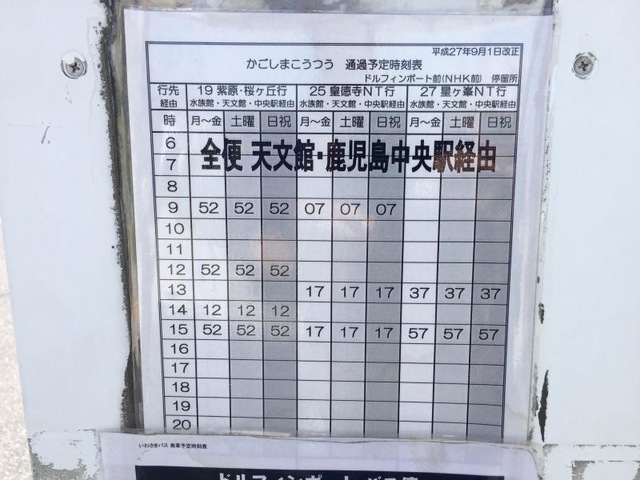 平成27年9月1日改正
かごしまこうつう 通過予定時刻表
ドルフィンポート前(NHK前) 停留所
行先 19 紫原・桜ヶ丘行 25 皇徳寺NT行 27 星ヶ峯NT行
経由 水族館・天文館・中央駅経由 水族館・天文館・中央駅経由 水族館・天文館・中央駅経由
時 月～金 土曜 日祝 月～金 土曜 日祝 月～金 土曜 日祝
6
全便 天文館・鹿児島中央駅経由
7
8
9 52 52 52 07 07 07
10
11
12 52 52 52
13 17 17 17 37 37 37
14 12 12 12
15 52 52 52 17 17 17 57 57 57
16
17
18
19
20
いわさきバス 発車予定時刻表
ドルフィンポート